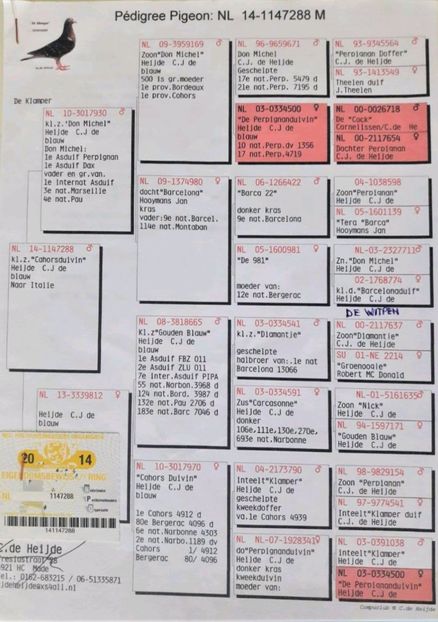 Pédigree Pigeon: NL 14-1147288 M
De Klamper
NL 14-1147288 ♂
kl.z."Cahorsduivn"
Heijde C.J de
blauw
Naar Italie
NL 10-3017930 ♂
kl.z."Don Michel"
Heijde C.J de
blauw
Don Michel:
1e Asduif Perpignan
1e Asduif Dax
vader en gr.van.
1e Internat Asduif
3e nat.Marseille
4e nat.Pau
NL 13-3339812 ♀
Heijde C.J de
blauw
NL 09-3959169 ♂
Zoon"Don Michel"
Heijde C.J de
blauw
500 is gr.moeder
1e prov.Bordeaux
1e prov.Cohors
NL 09-1374980 ♀
docht"Barcelona"
Hooymans Jan
kras
vader:9e nat.Barcel.
114e nat.Montaban
NL 08-3818665 ♂
Kl.z"Gouden Blauw"
Heijde C.J de
blauw
1e Asduif FBZ O11
2e Asduif ZLU O11
7e Inter.Asduif PIPA
55 nat.Norbon.3968 d
124 nat.Bord. 3987 d
132e nat.Pau 2706 d
183e nat.Barc 7046 d
NL 10-3017970 ♀
"Cahors Duivin"
Heijde C.J de
blauw
1e Cahors 4912 d
80e Bergerac 4096 d
6e nat.Narbonn 2305
42e nat.Norbo.1189 dv
Cahors 1/ 4912
Bergerac 80/ 4096
NL 96-9659671 ♂
Don Michel
Heijde C.J de
Geschelpte
17e nat.Perp. 5479 d
21e nat.Perp. 7195 d
NL 03-0334500 ♀
"De Perpignanduivin"
Heijde C.J de
blauw
10 nat.Perp.dv 1356
17 nat.Perp.4719
NL 06-1266422 ♂
"Barca 22"
donker kras
9e nat.Barcelona
NL 05-1600981 ♀
"De 981"
moeder van:
12e nat.Bergerac
NL 03-0334541 ♂
kl.z."Diamantje"
geschelpte
halbroer van:.1e nat
Barcelona 13066
NL 03-0334591 ♀
Zus"Carcasonne"
Heijde C.J de
donker
106e,111e,130e,270e,
693e nat.Narbonne
NL 04-2173790 ♂
Inteelt"Klamper"
Heijde C.J de
geschelpte
kweekdoffer
va.1e Cahors 4939
NL NL-07-1928341 ♀
do"Perpignanduivin"
Heijde C.J de
donker kras
kweekduivin
moeder van:
NL 93-9345564 ♂
"Perpignan Doffer"
Heijde C.J. de
NL 93-1413549 ♀
Theelen duif
J.Theelen
NL 00-0026718 ♂
De "Cock"
Cornelissen/C.de He
NL 00-2117654 ♀
Dochter Perpignan
C.J. de Heijde
04-1038598 ♂
Zoon"Perpignan"
C.J. de Heijde
NL 05-1601139 ♀
"Tera "Barca"
Hooymans Jan
NL-03-2327711 ♂
Zn."Don Michel"
Heijde C.J de
02-1768774 ♀
kl.d."Barcelonaduif"
Heijde C.J de
DE WITPEN
NL 00-2117637 ♂
Zoon"Diamantje"
C.J. de Heijde
SU 01-NE 2214 ♀
"Groenoogie"
Robert MC Donald
NL-01-5161635 ♂
Zoon "Nick"
Heijde C.J de
NL 94-1597171 ♀
"Gouden Blauw"
Heijde C.J de
NL 98-9829154 ♂
Zoon "Perpignan"
C.J. de Heijde
NL 97-9774541 ♀
Inteelt"Klamper duif
C.J. de Heijde
NL 03-0391038 ♂
inteelt"Klamper"
Heijde C.J de
NL 03-0334500 ♀
"De Perpignanduivin"
Heijde C.J de
20 14
EIGENDOMSBEWIJS RING
NL
1147288
141147288
C.J de Heijde
Made
Tel.: 0162-683215 / 06-51335871
Compuclub © C.J de Heijde